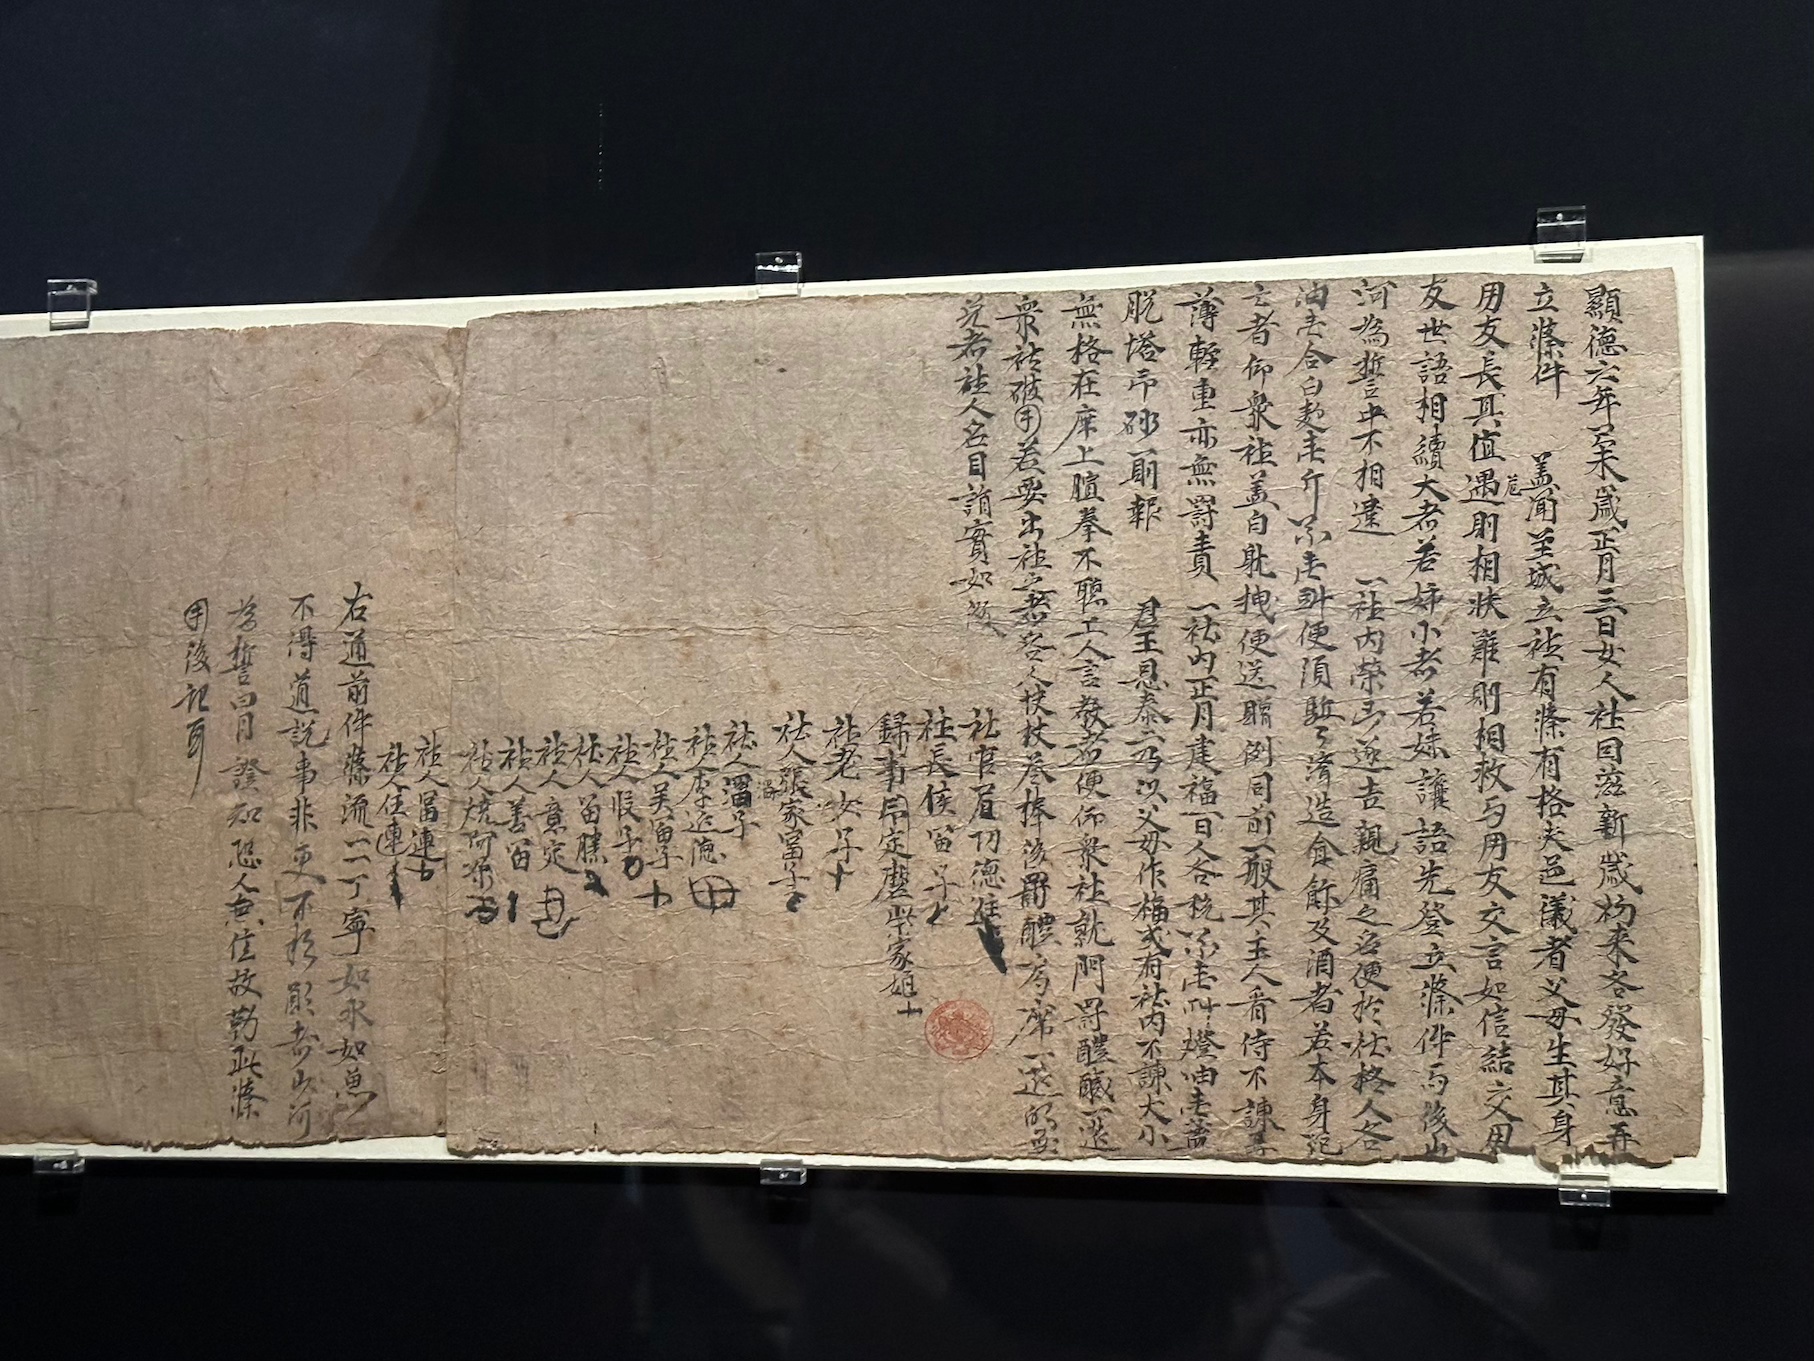 顯德六年己未歲正月三日女人社因滋新歲初來各發好意再
立條件 蓋聞至城立社有條有格夫邑儀者父母生其身
用友長其值遇危則相扶難則相救与用友交言如信結交用
友世語相續大者若姉小者若妹讓語先登立條件与後山
河為誓中不相違 一社內榮凶逐吉親痛之名便於社格人各
油壹合白麵壹斤粟壹䣺便須駈〻濟造食飰及酒者若本身死
亡者仰衆社盖白躭拽便送贈例同前一般其主人看侍不諫厚
薄輕重亦無罸責 一社內正月建福一日人各稅粟壹䣺燈油壹盞
脫塔印砂一則報 君王恩泰二乃以父母作福或有社內不諫大小
無格在席上喧拳不聽上人言教者便仰衆社就門罸醴醎一筵
衆社破用若要出社之者各人杖杖叁棒後罸醴局席一筵的無
免者社人名目詣實如後
社官尼功德進
社長侯富子
錄事印定磨柴家娘
社老女子
社人張家富子
社人渦子
社人李延德
社人吳富子
社人段子
社人富勝
社人意定
社人善富
社人燒阿朶
社人富連
社人住連
右通前件條流一一丁寧如水如魚
不得道說事非更不於願者山河
為誓日月證知恐人無信故勒此條
用後記耳